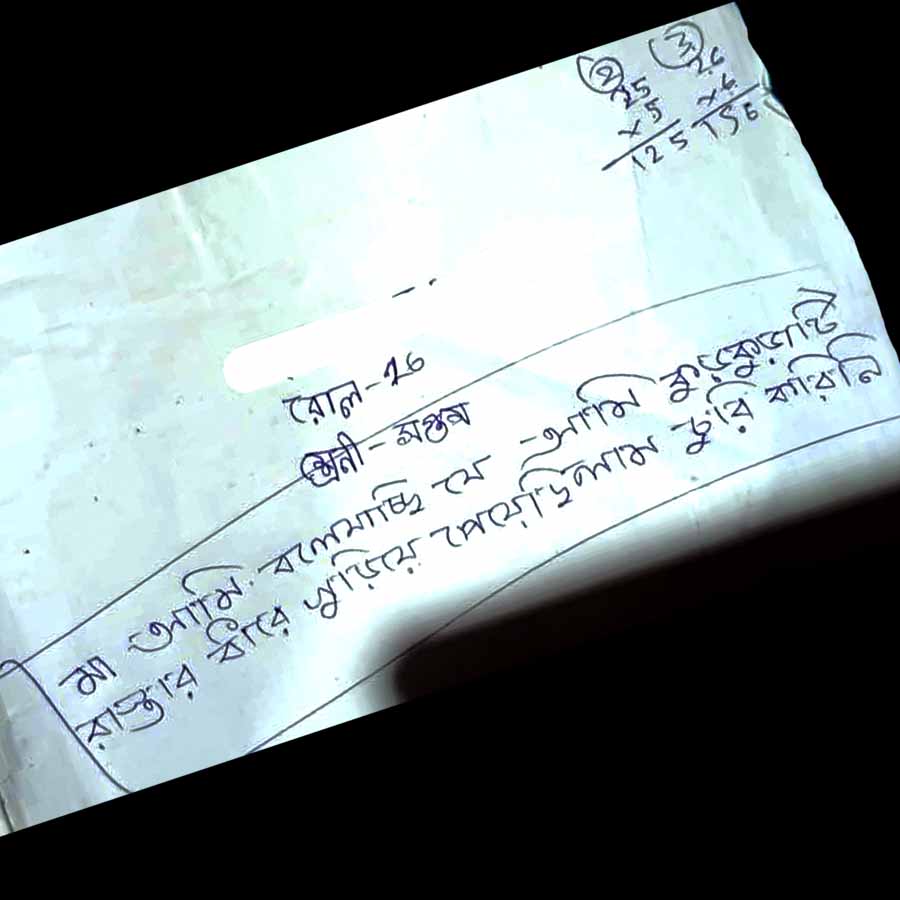 ② ③
25 26
×5 ×6
125 156
রোল-26
শ্রেনী-সপ্তম
মা আমি বলেযাচ্ছি যে আমি কুড়কুড়াটি
রাস্তার ধারে খুড়িয়ে পেয়েছিলাম চুরি করিনি